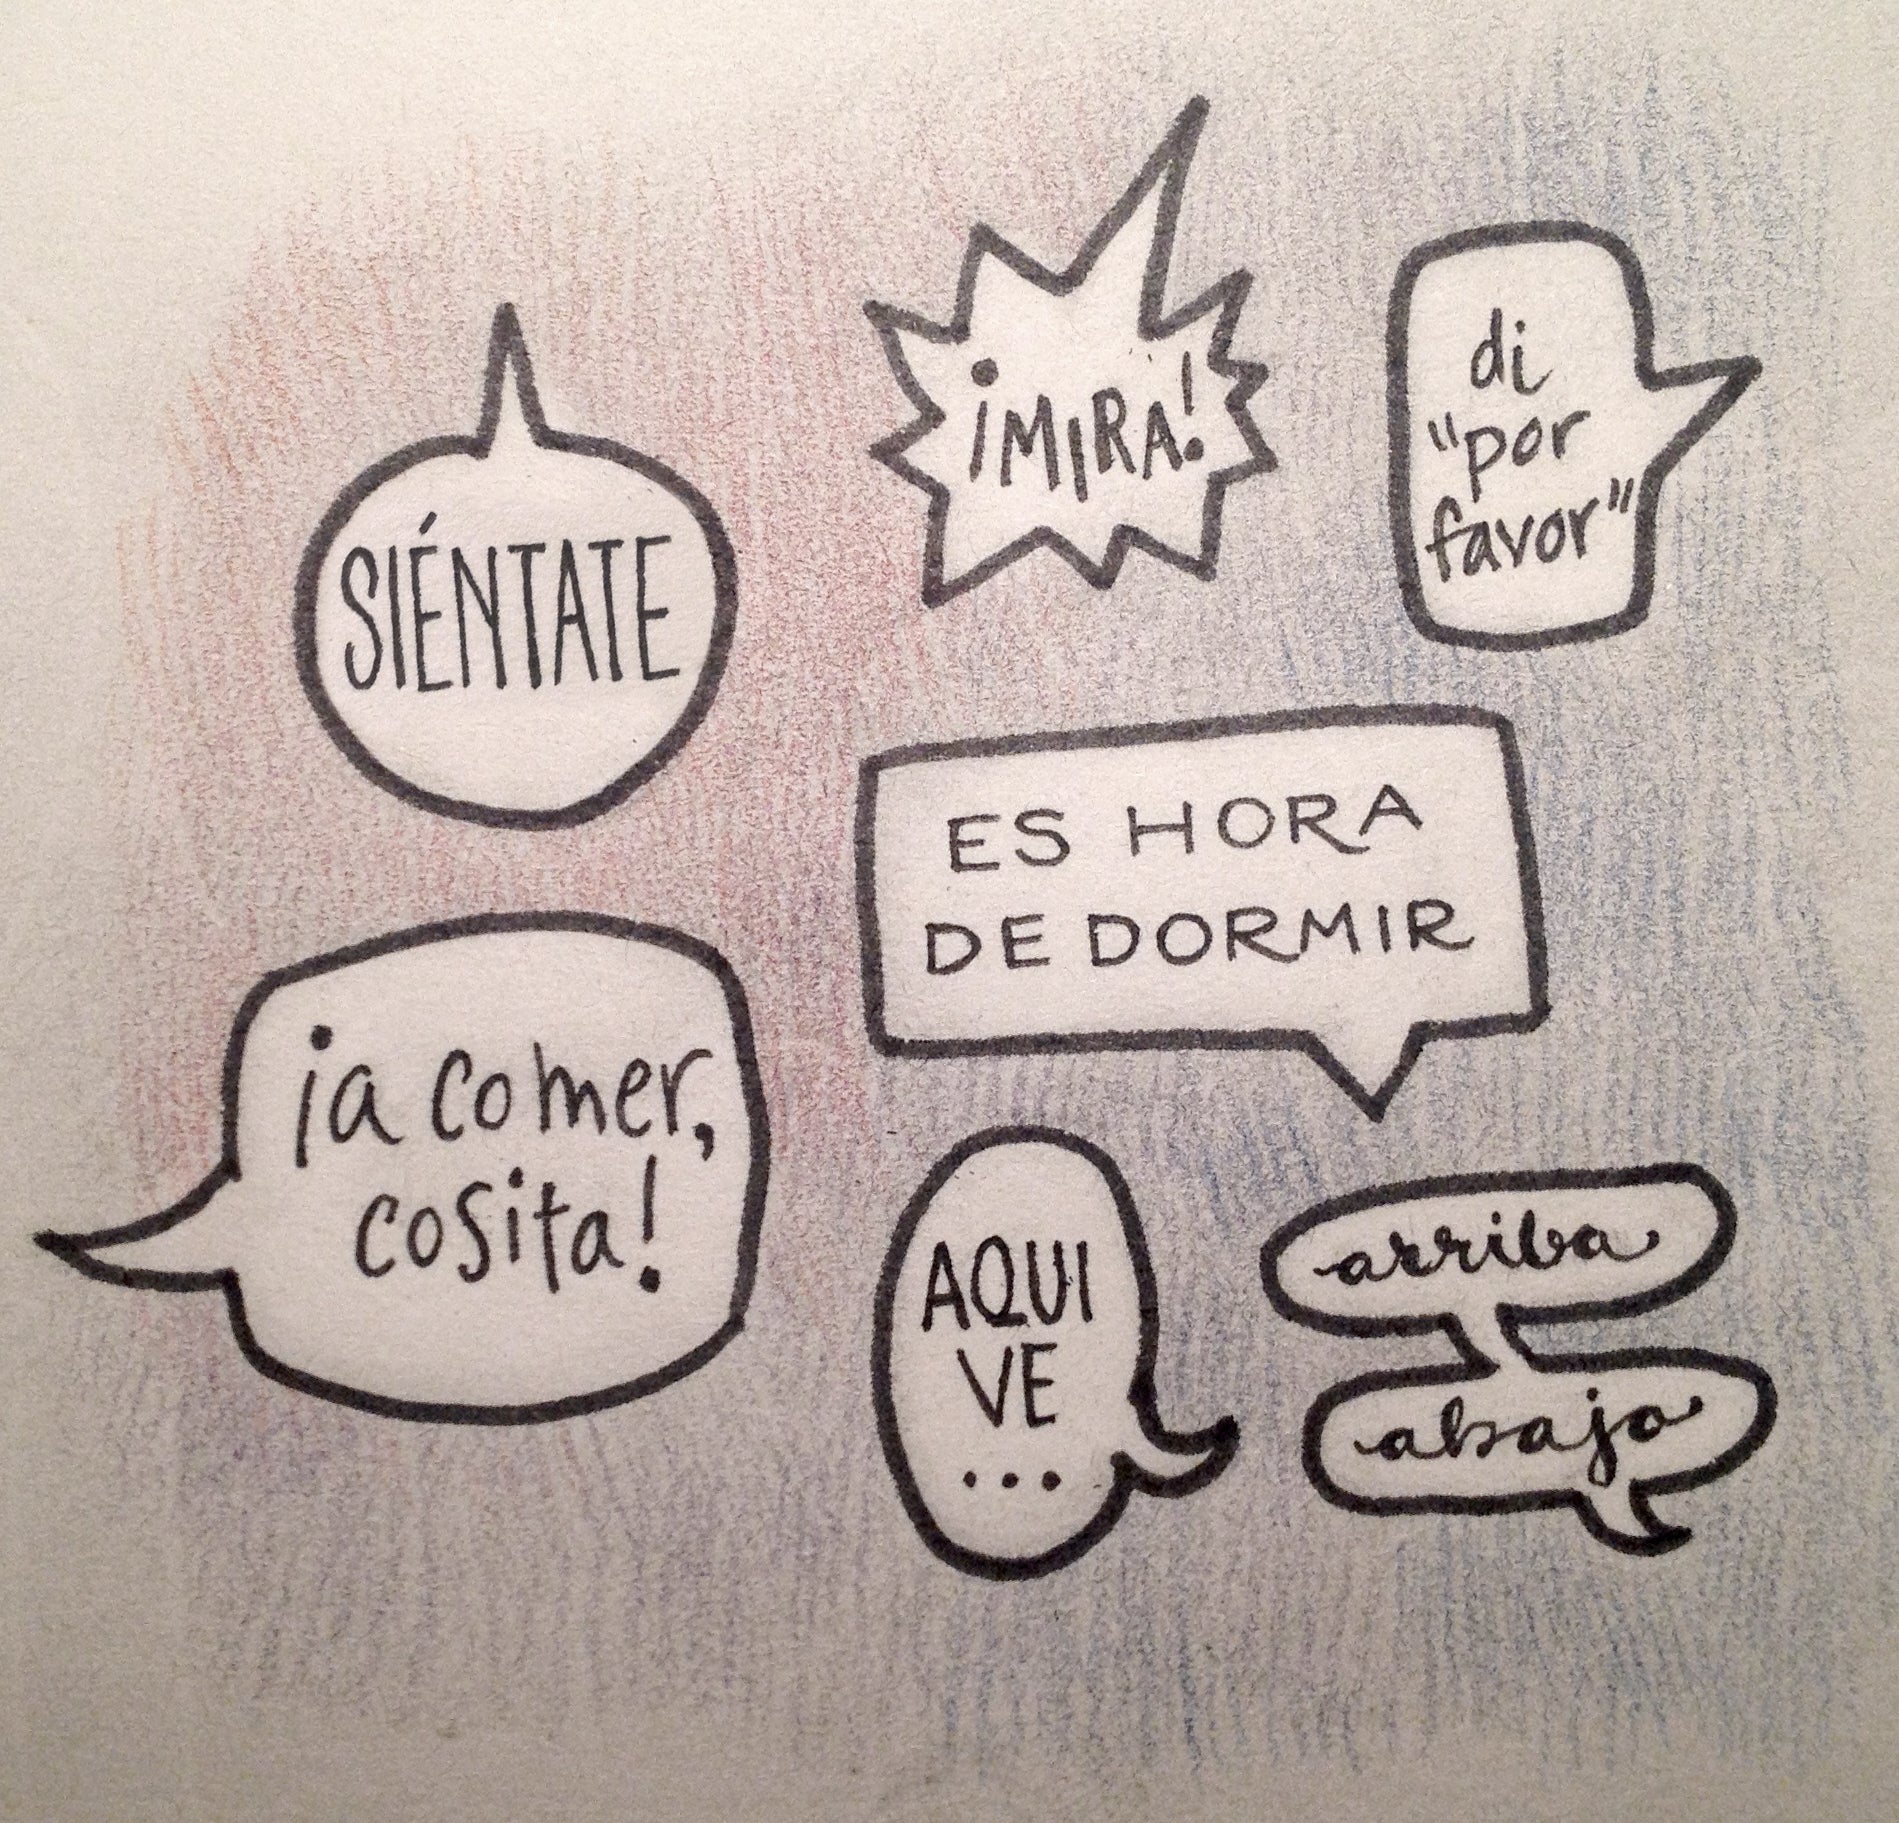 SIÉNTATE
¡MIRA!
di
"por
favor"
ES HORA
DE DORMIR
¡a comer,
cosita!
AQUI
VE
...
arriba
abajo